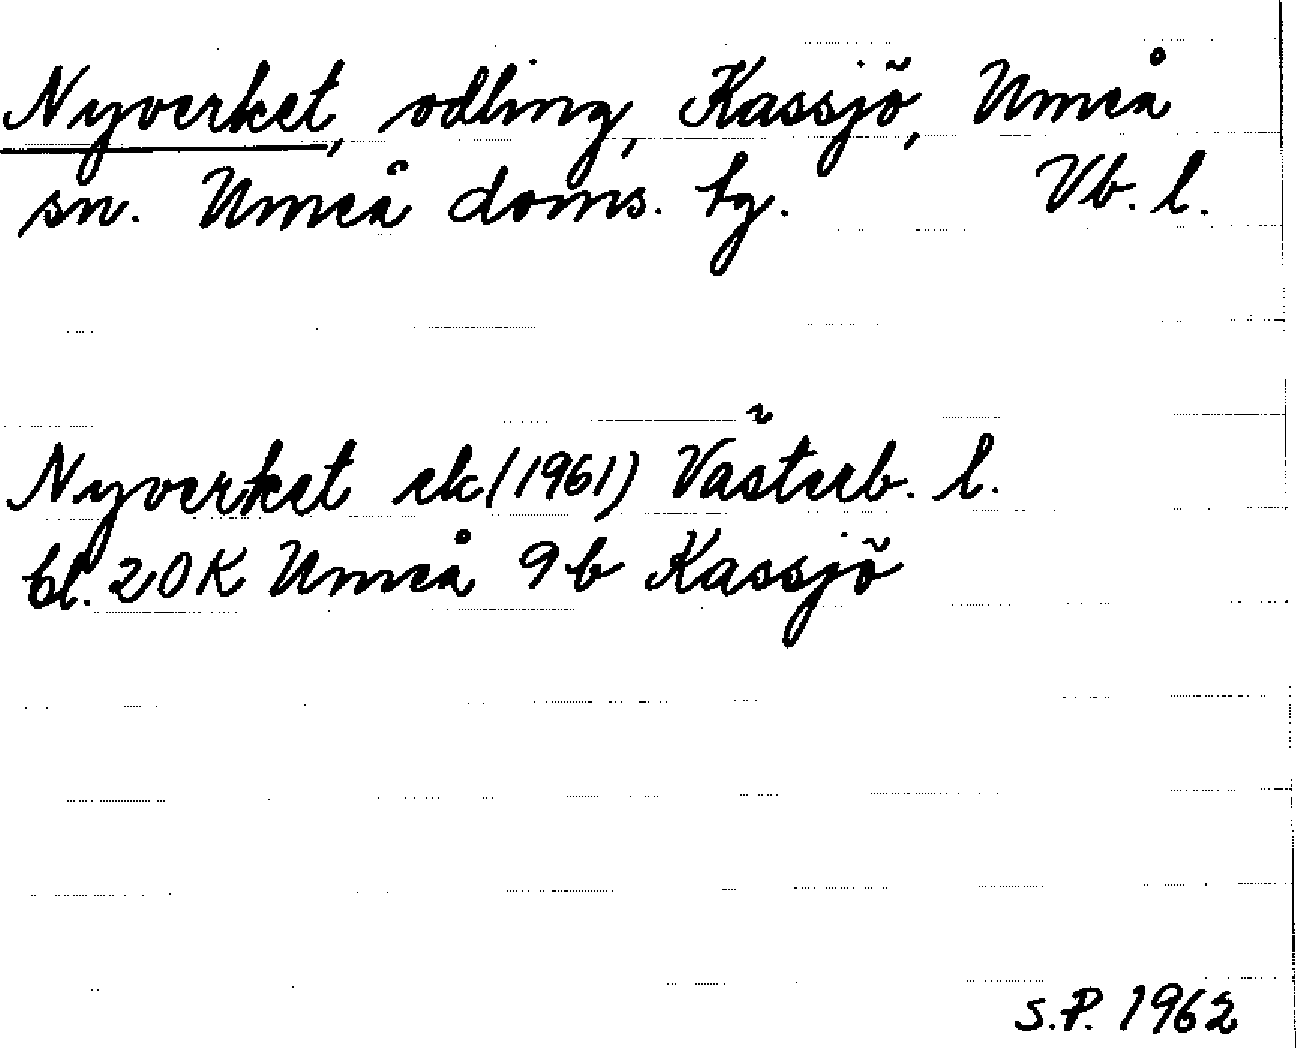 Nyverket, odling, Kassjö, Umeå
sn. Umeå doms. tg. Vb. l.
Nyverket ek (1961) Västerb. l.
bl. 20K Umeå 9b Kassjö
S.P. 1962